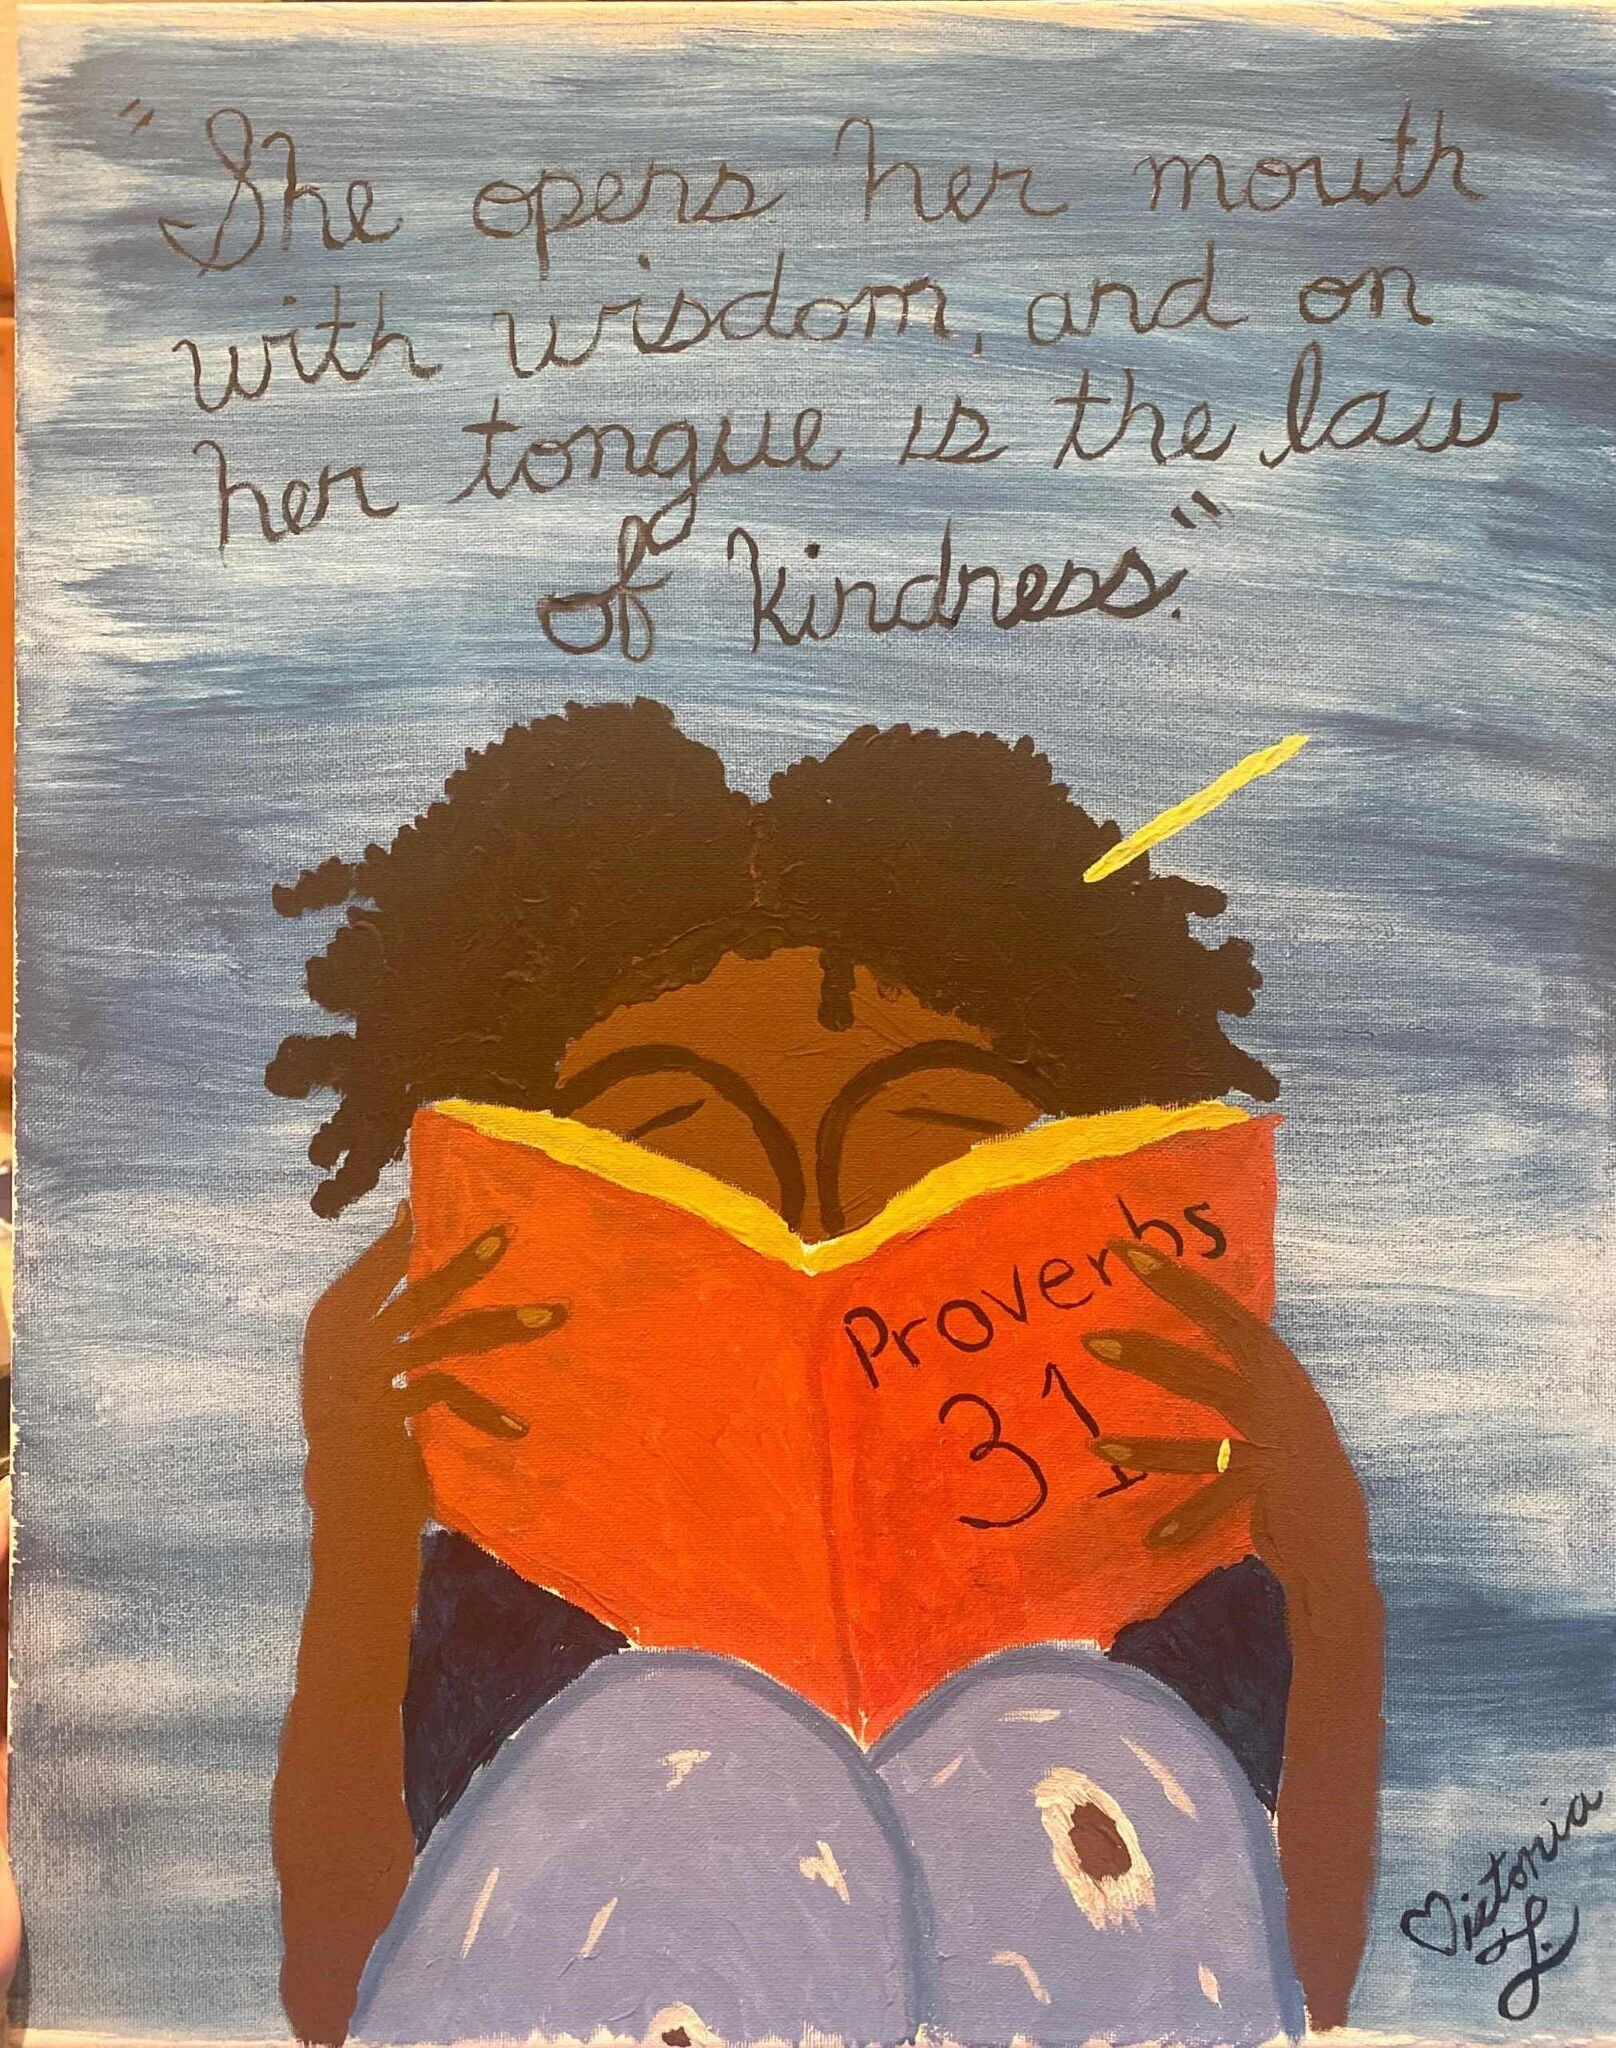 "She opens her mouth
with wisdom, and on
her tongue is the law
of kindness."
Proverbs
31
Victoria
L.